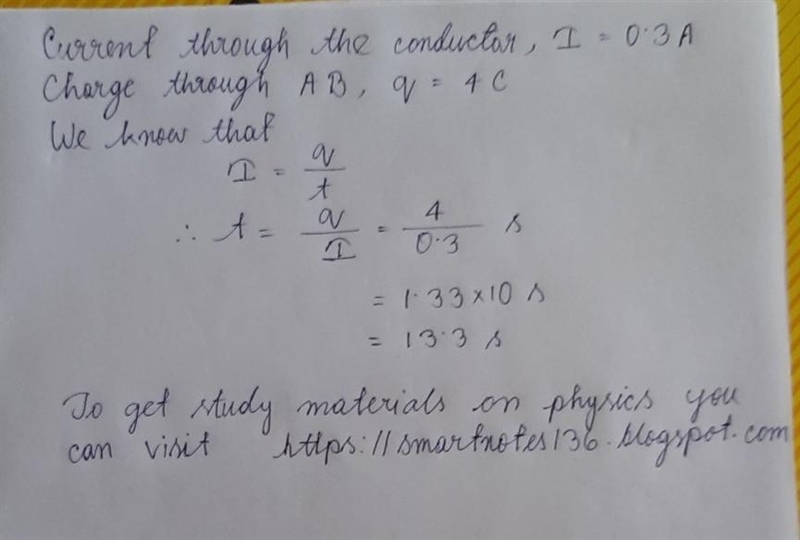 Current through the conductor, I = 0.3 A
Charge through AB, q = 4 C
We know that
I = q/t
∴ t = q/I = 4/0.3 s
= 1.33 × 10 s
= 13.3 s
To get study materials on physics you
can visit https://smartnotes136.blogspot.com